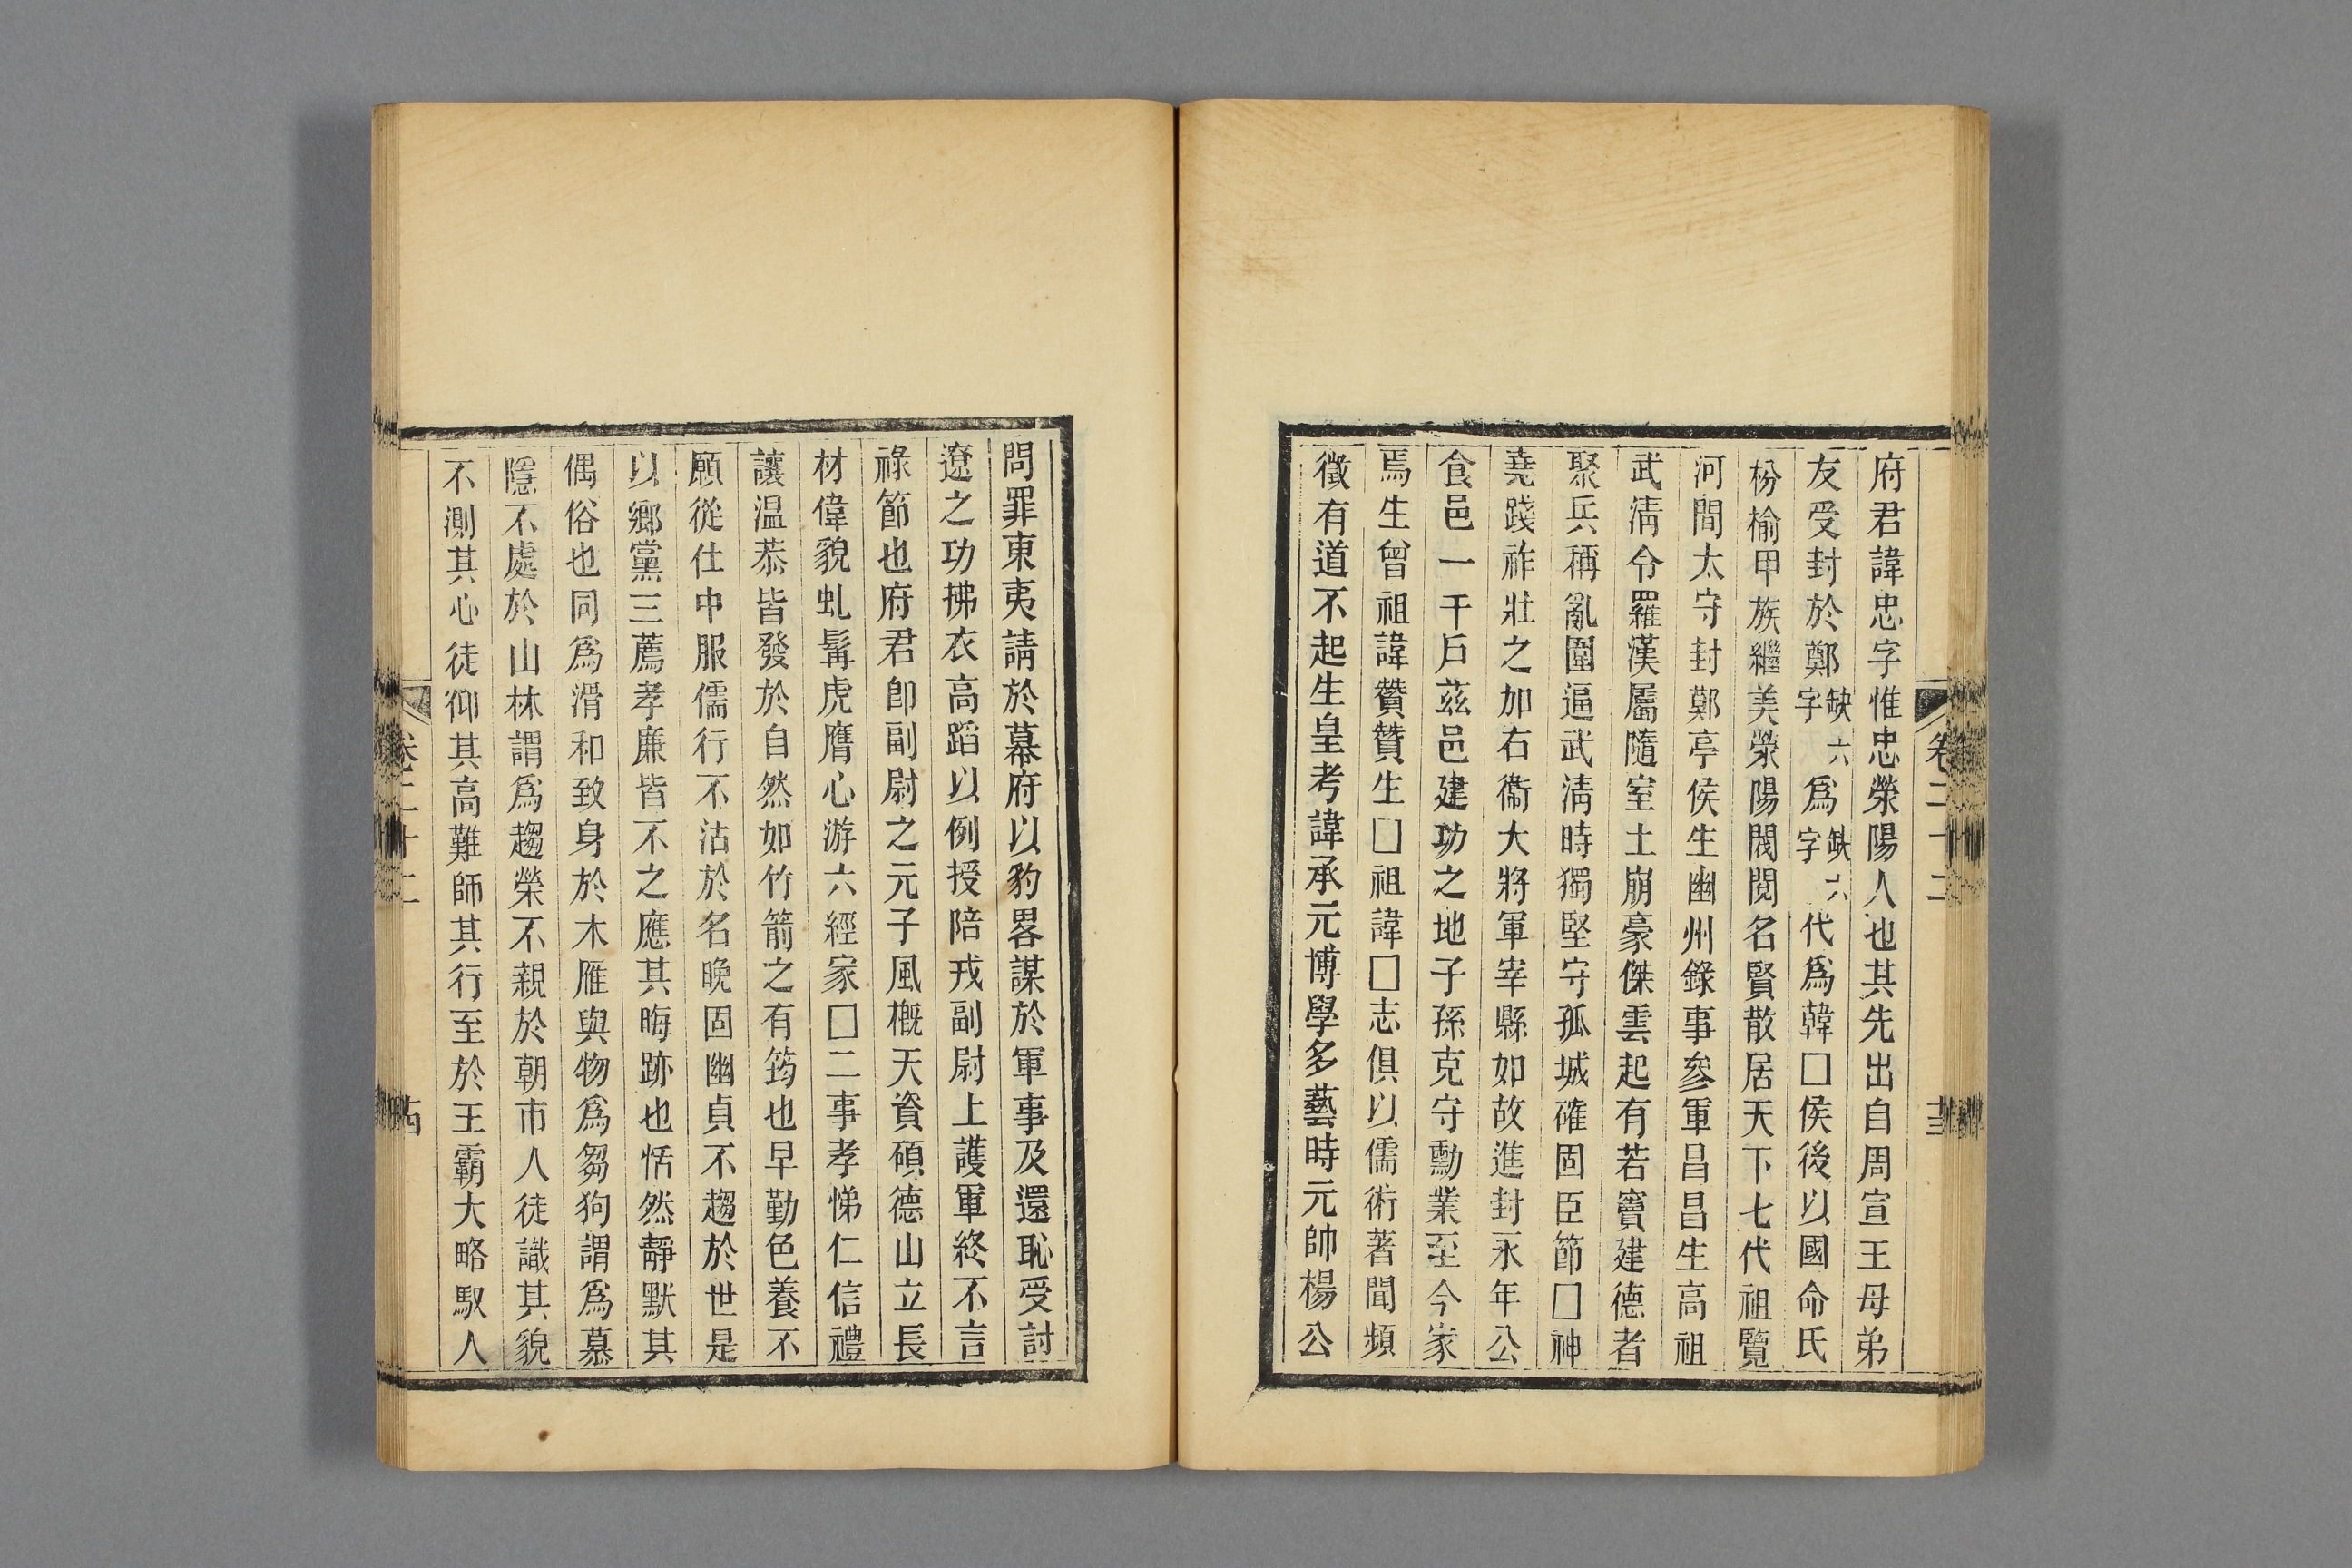 府君諱忠字惟忠滎陽人也其先出自周宣王母弟
友受封於鄭缺六字爲缺六字代爲韓□侯後以國命氏
枌榆甲族繼美滎陽閥閱名賢散居天下七代祖覽
河間太守封鄭亭侯生幽州錄事參軍昌昌生高祖
武清令羅漢屬隨室土崩豪傑雲起有若竇建德者
聚兵稱亂圍逼武清時獨堅守孤城確固臣節□神
堯踐祚壯之加右衞大將軍宰縣如故進封永年公
食邑一千戶茲邑建功之地子孫克守勳業至今家
焉生曾祖諱贊贊生□祖諱□志俱以儒術著聞頻
徵有道不起生皇考諱承元博學多藝時元帥楊公
卷二十二
問罪東夷請於幕府以豹畧謀於軍事及還恥受討
遼之功拂衣高蹈以例授陪戎副尉上護軍終不言
祿節也府君卽副尉之元子風概天資碩德山立長
材偉貌虬髯虎膺心游六經家□二事孝悌仁信禮
讓温恭皆發於自然如竹箭之有筠也早勤色養不
願從仕中服儒行不沽於名晚固幽貞不趨於世是
以鄉黨三薦孝廉皆不之應其晦跡也恬然靜默其
偶俗也同爲滑和致身於木雁與物爲芻狗謂爲慕
隱不處於山林謂爲趨榮不親於朝市人徒識其貌
不測其心徒仰其高難師其行至於王霸大略馭人
卷二十二